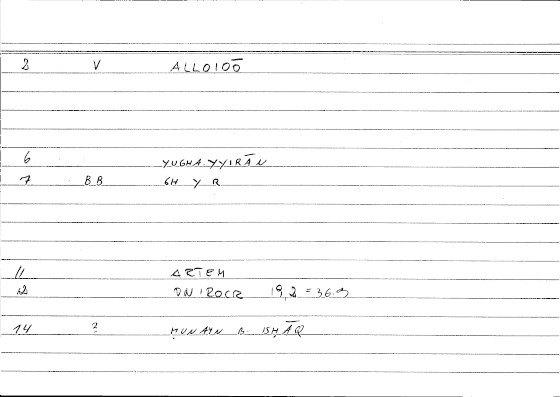 2 V ALLOIOŌ
6 YUGHAYYIRĀN
7 BB GH Y R
11 ARTEM
12 ONIROCR 19,2 = 36.9
14 ? ḤUNAYN B. ISḤĀQ